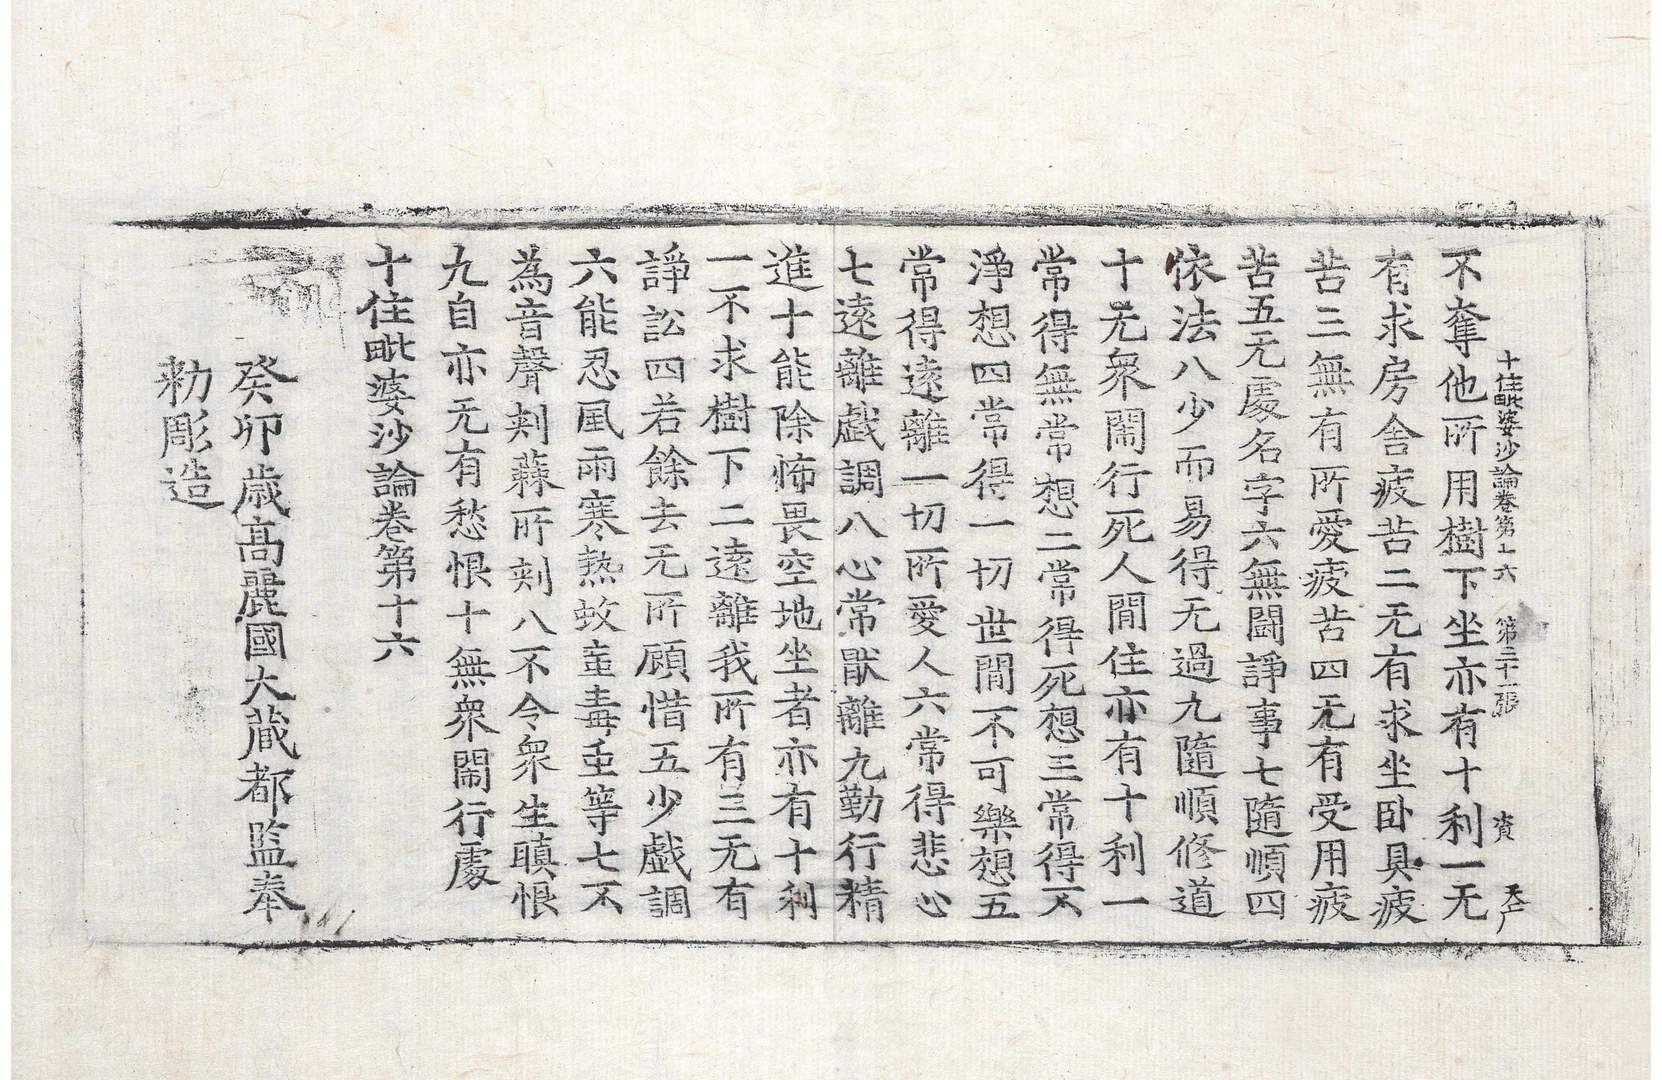 十住毗婆沙論卷第十六 第二十一張 資 天广
不奪他所用樹下坐亦有十利一无
有求房舍疲苦二无有求坐卧具疲
苦三無有所愛疲苦四无有受用疲
苦五无處名字六無鬪諍事七隨順四
依法八少而易得无過九隨順修道
十无衆閙行死人間住亦有十利一
常得無常想二常得死想三常得不
淨想四常得一切世間不可樂想五
常得遠離一切所愛人六常得悲心
七遠離戲調八心常猒離九勤行精
進十能除怖畏空地坐者亦有十利
一不求樹下二遠離我所有三无有
諍訟四若餘去无所顧惜五少戲調
六能忍風雨寒熱蚊蝱毒虫等七不
為音聲刾蕀所刾八不令衆生瞋恨
九自亦无有愁恨十無衆閙行處
十住毗婆沙論卷第十六
癸卯歳髙麗國大藏都監奉
勑彫造